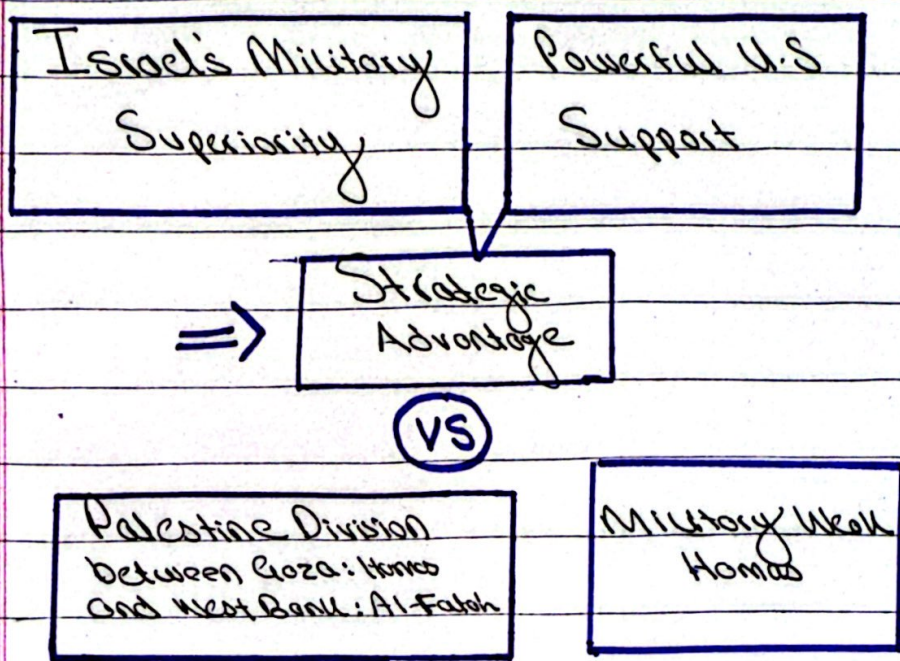 Israel's Military
Superiority
Powerful U.S
Support
⇒
Strategic
Advantage
VS
Palestine Division
between Gaza: Hamas
and West Bank: Al-Fatah
Military Weak
Hamas